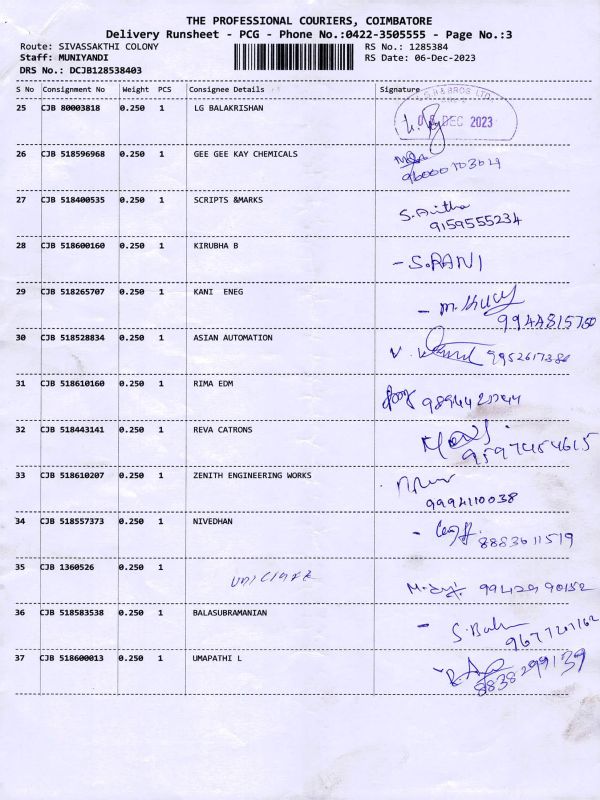 THE PROFESSIONAL COURIERS, COIMBATORE
Delivery Runsheet - PCG - Phone No.:0422-3505555 - Page No.:3
Route: SIVASSAKTHI COLONY RS No.: 1285384
Staff: MUNIYANDI RS Date: 06-Dec-2023
DRS No.: DCJB128538403
S No Consignment No Weight PCS Consignee Details Signature
25 CJB 80003818 0.250 1 LG BALAKRISHAN
& BROS LTD
DEC 2023
26 CJB 518596968 0.250 1 GEE GEE KAY CHEMICALS
27 CJB 518400535 0.250 1 SCRIPTS &MARKS S. Anitha
9159555234
28 CJB 518600160 0.250 1 KIRUBHA B - S.RANI
29 CJB 518265707 0.250 1 KANI ENEG
9944815750
30 CJB 518528834 0.250 1 ASIAN AUTOMATION 9952617386
31 CJB 518610160 0.250 1 RIMA EDM
32 CJB 518443141 0.250 1 REVA CATRONS
9597454615
33 CJB 518610207 0.250 1 ZENITH ENGINEERING WORKS
9994110038
34 CJB 518557373 0.250 1 NIVEDHAN
8883611519
35 CJB 1360526 0.250 1
9942990152
36 CJB 518583538 0.250 1 BALASUBRAMANIAN - S. Bala
9677207162
37 CJB 518600013 0.250 1 UMAPATHI L
8838299139